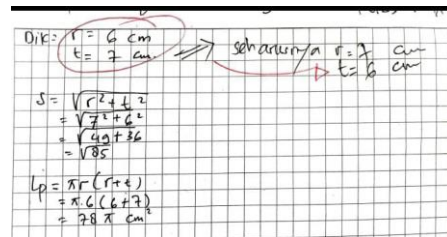 Dik: r = 6 cm
t = 7 cm
seharusnya r = 7 cm
t = 6 cm
S = √r² + t²
= √7² + 6²
= √49 + 36
= √85
Lp = πr (r+t)
= π.6 (6+7)
= 78 π cm²